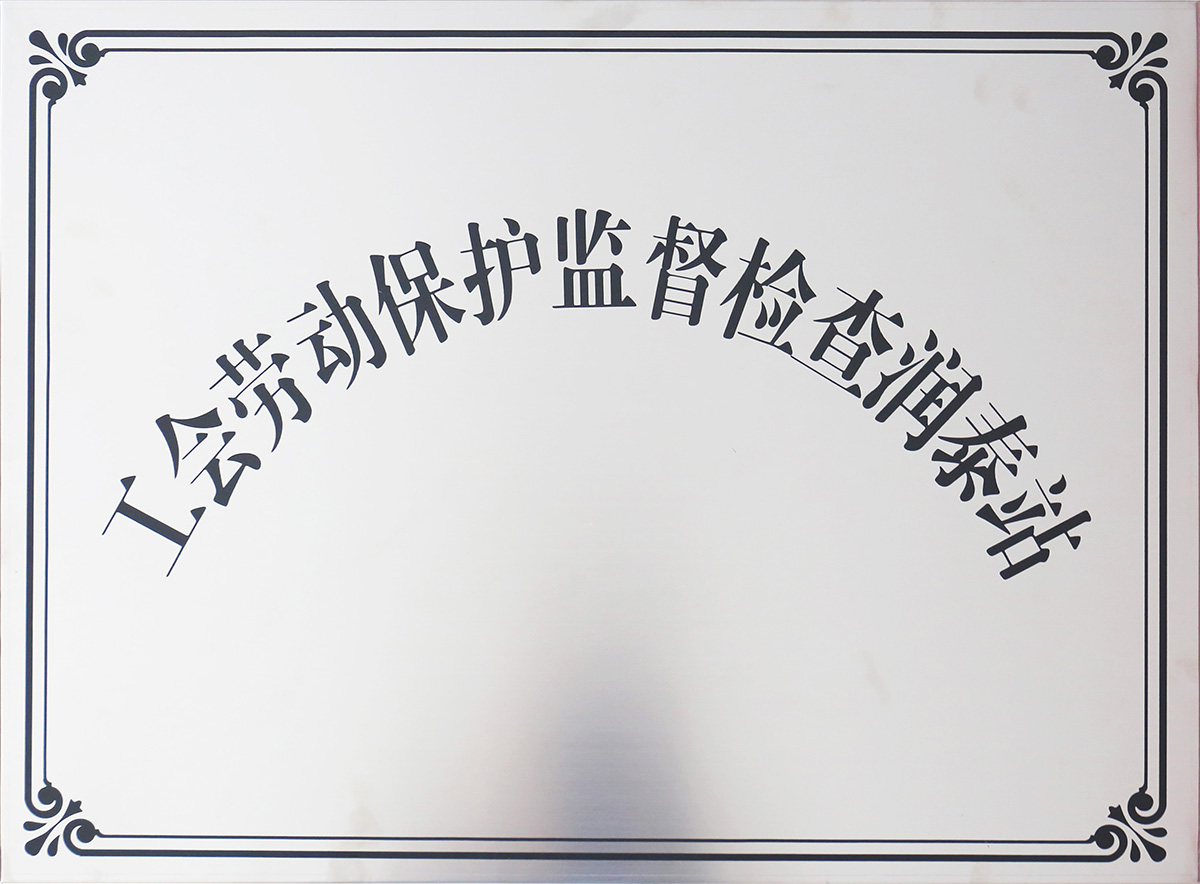 工会劳动保护监督检查润泰站